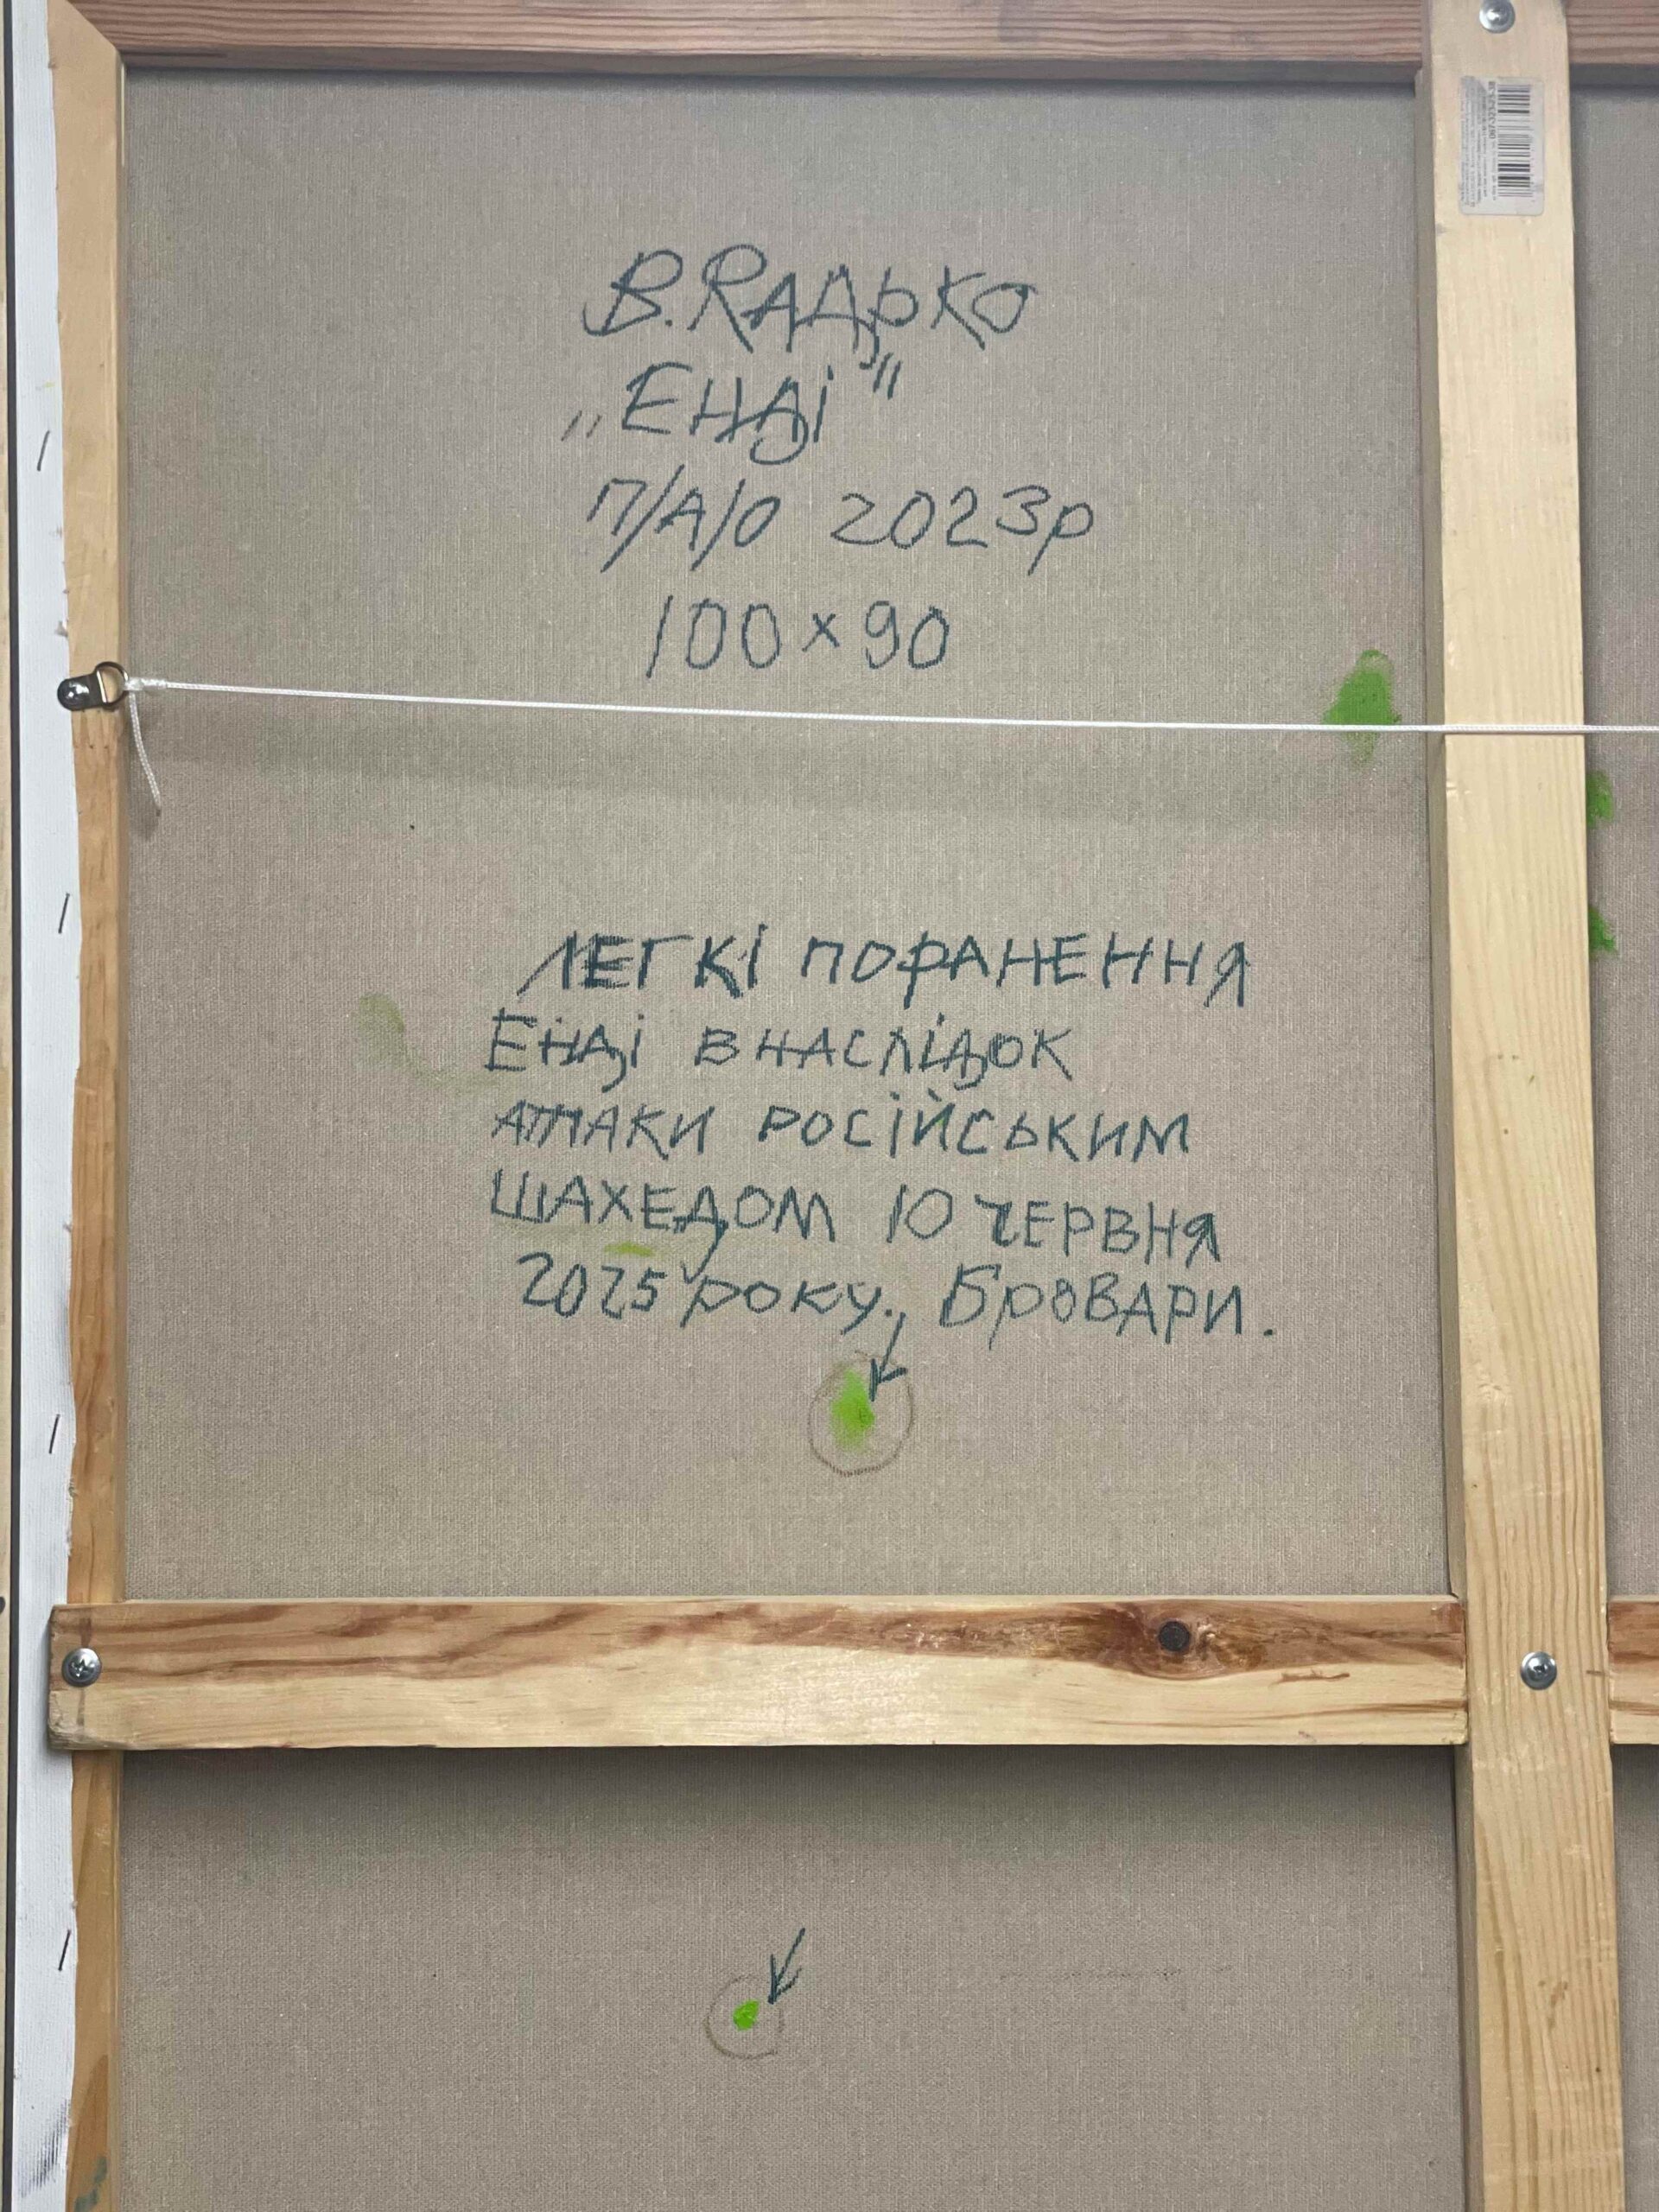 В. Радько
„Енді"
П/А/О 2023р
100×90
ЛЕГКІ ПОРАНЕННЯ
ЕНДІ ВНАСЛІДОК
АТАКИ РОСІЙСЬКИМ
ШАХЕДОМ 10 ЧЕРВНЯ
2025 року. Бровари.